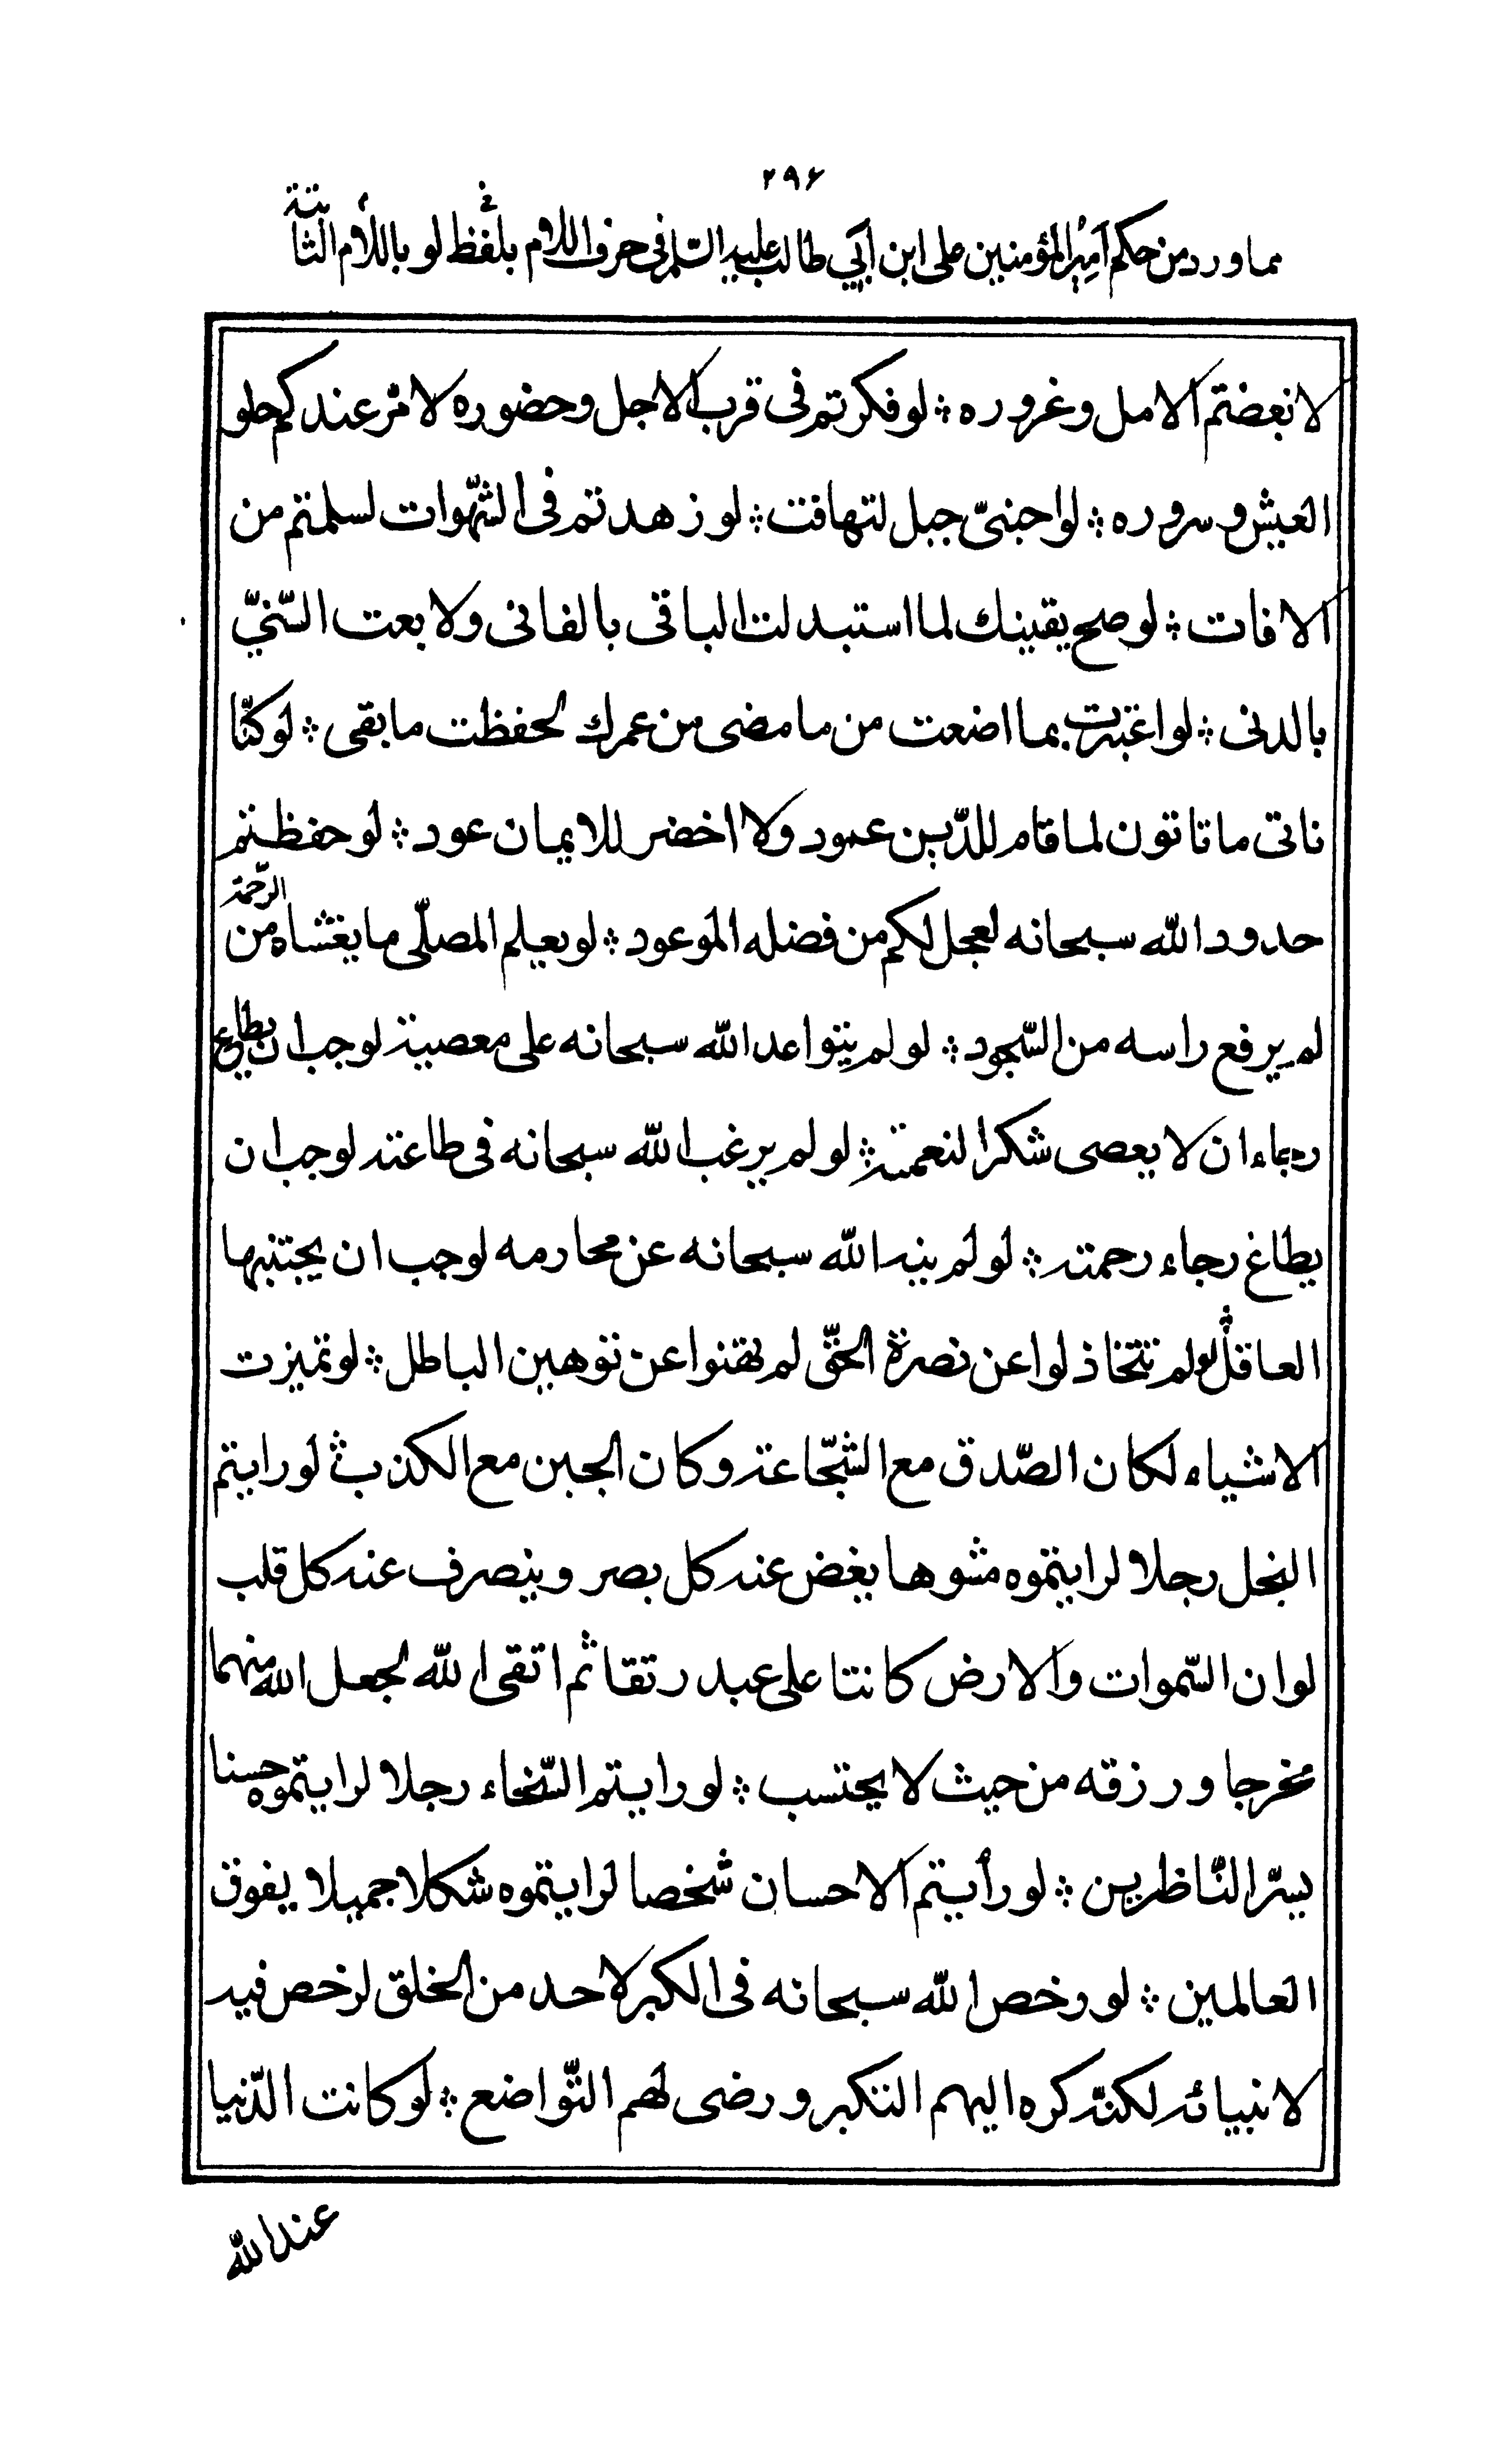 ۲۹۶
مما ورد من حكم أمير المؤمنين على ابن أبي طالب عليه السّلم فى حرف اللام بلفظ لو باللّام الثابتة فى
لا نعضتم الامل وغروره ؞ لو فكرتم فى قرب الاجل وحضوره لامرّ عندكم حلو
العيش وسروره ؞ لو احبنىّ جبل لتهافت ؞ لو زهدتم فى الشّهوات لسلمتم من
الافات ؞ لو صح يقينك لما استبدلت الباقى بالفانى ولا بعت السّنىّ
بالدنى ؞ لو اعتبرت بما اضعت من ما مضى من عمرك لحفظت ما بقى ؞ لو كنّا
ناتى ما تاتون لما قام للدّين عمود ولا اخضر للايمان عود ؞ لو حفظتم
حدود الله سبحانه لعجل لكم من فضله الموعود ؞ لو يعلم المصلّى ما يغشاه من الرّحمة
لم يرفع راسه من السّجود ؞ لو لم يتواعد الله سبحانه على معصية لوجب ان يطاع
رجاء ان لا يعصى شكرا لنعمته ؞ لو لم يرغب الله سبحانه فى طاعته لوجب ان
يطاع رجاء رحمته ؞ لو لم ينه الله سبحانه عن محارمه لوجب ان يجتنبها
العاقل ؞ لو لم تتخاذلوا عن نصرة الحقّ لم تهنوا عن توهين الباطل ؞ لو تميزت
الاشياء لكان الصّدق مع الشّجاعة وكان الجبن مع الكذب ؞ لو رايتم
البخل رجلا لرايتموه مشوها يغض عنه كل بصر وينصرف عنه كل قلب
لو ان السّموات والارض كانتا على عبد رتقا ثم اتقى الله لجعل الله منهما
مخرجا ورزقه من حيث لا يحتسب ؞ لو رايتم السّخاء رجلا لرايتموه حسنا
يسرّ النّاظرين ؞ لو رأيتم الاحسان شخصا لرايتموه شكلا جميلا يفوق
العالمين ؞ لو رخص الله سبحانه فى الكبر لاحد من الخلق لرخص فيه
لانبيائه لكنّه كره اليهم التكبر ورضى لهم التّواضع ؞ لو كانت الدّنيا
عند الله